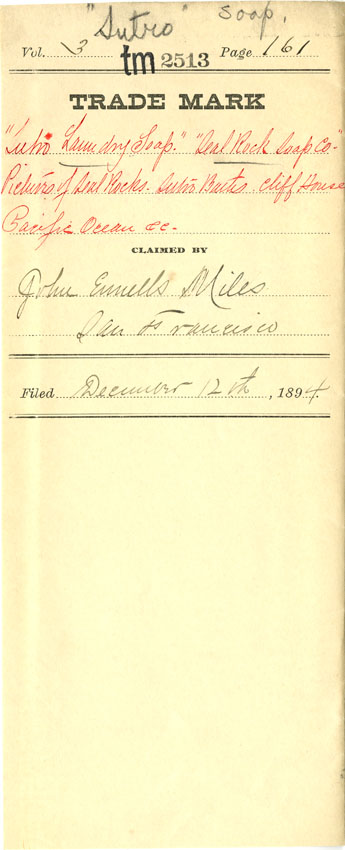 "Sutro" Soap.
Vol. 3 Page 161
tm 2513
TRADE MARK
"Sutro Laundry Soap." "Seal Rock Soap Co."
Picture of Seal Rocks. Sutro Baths. Cliff House
Pacific Ocean &c.
CLAIMED BY
John Ennells Miles
San Francisco
Filed December 12th, 1894.